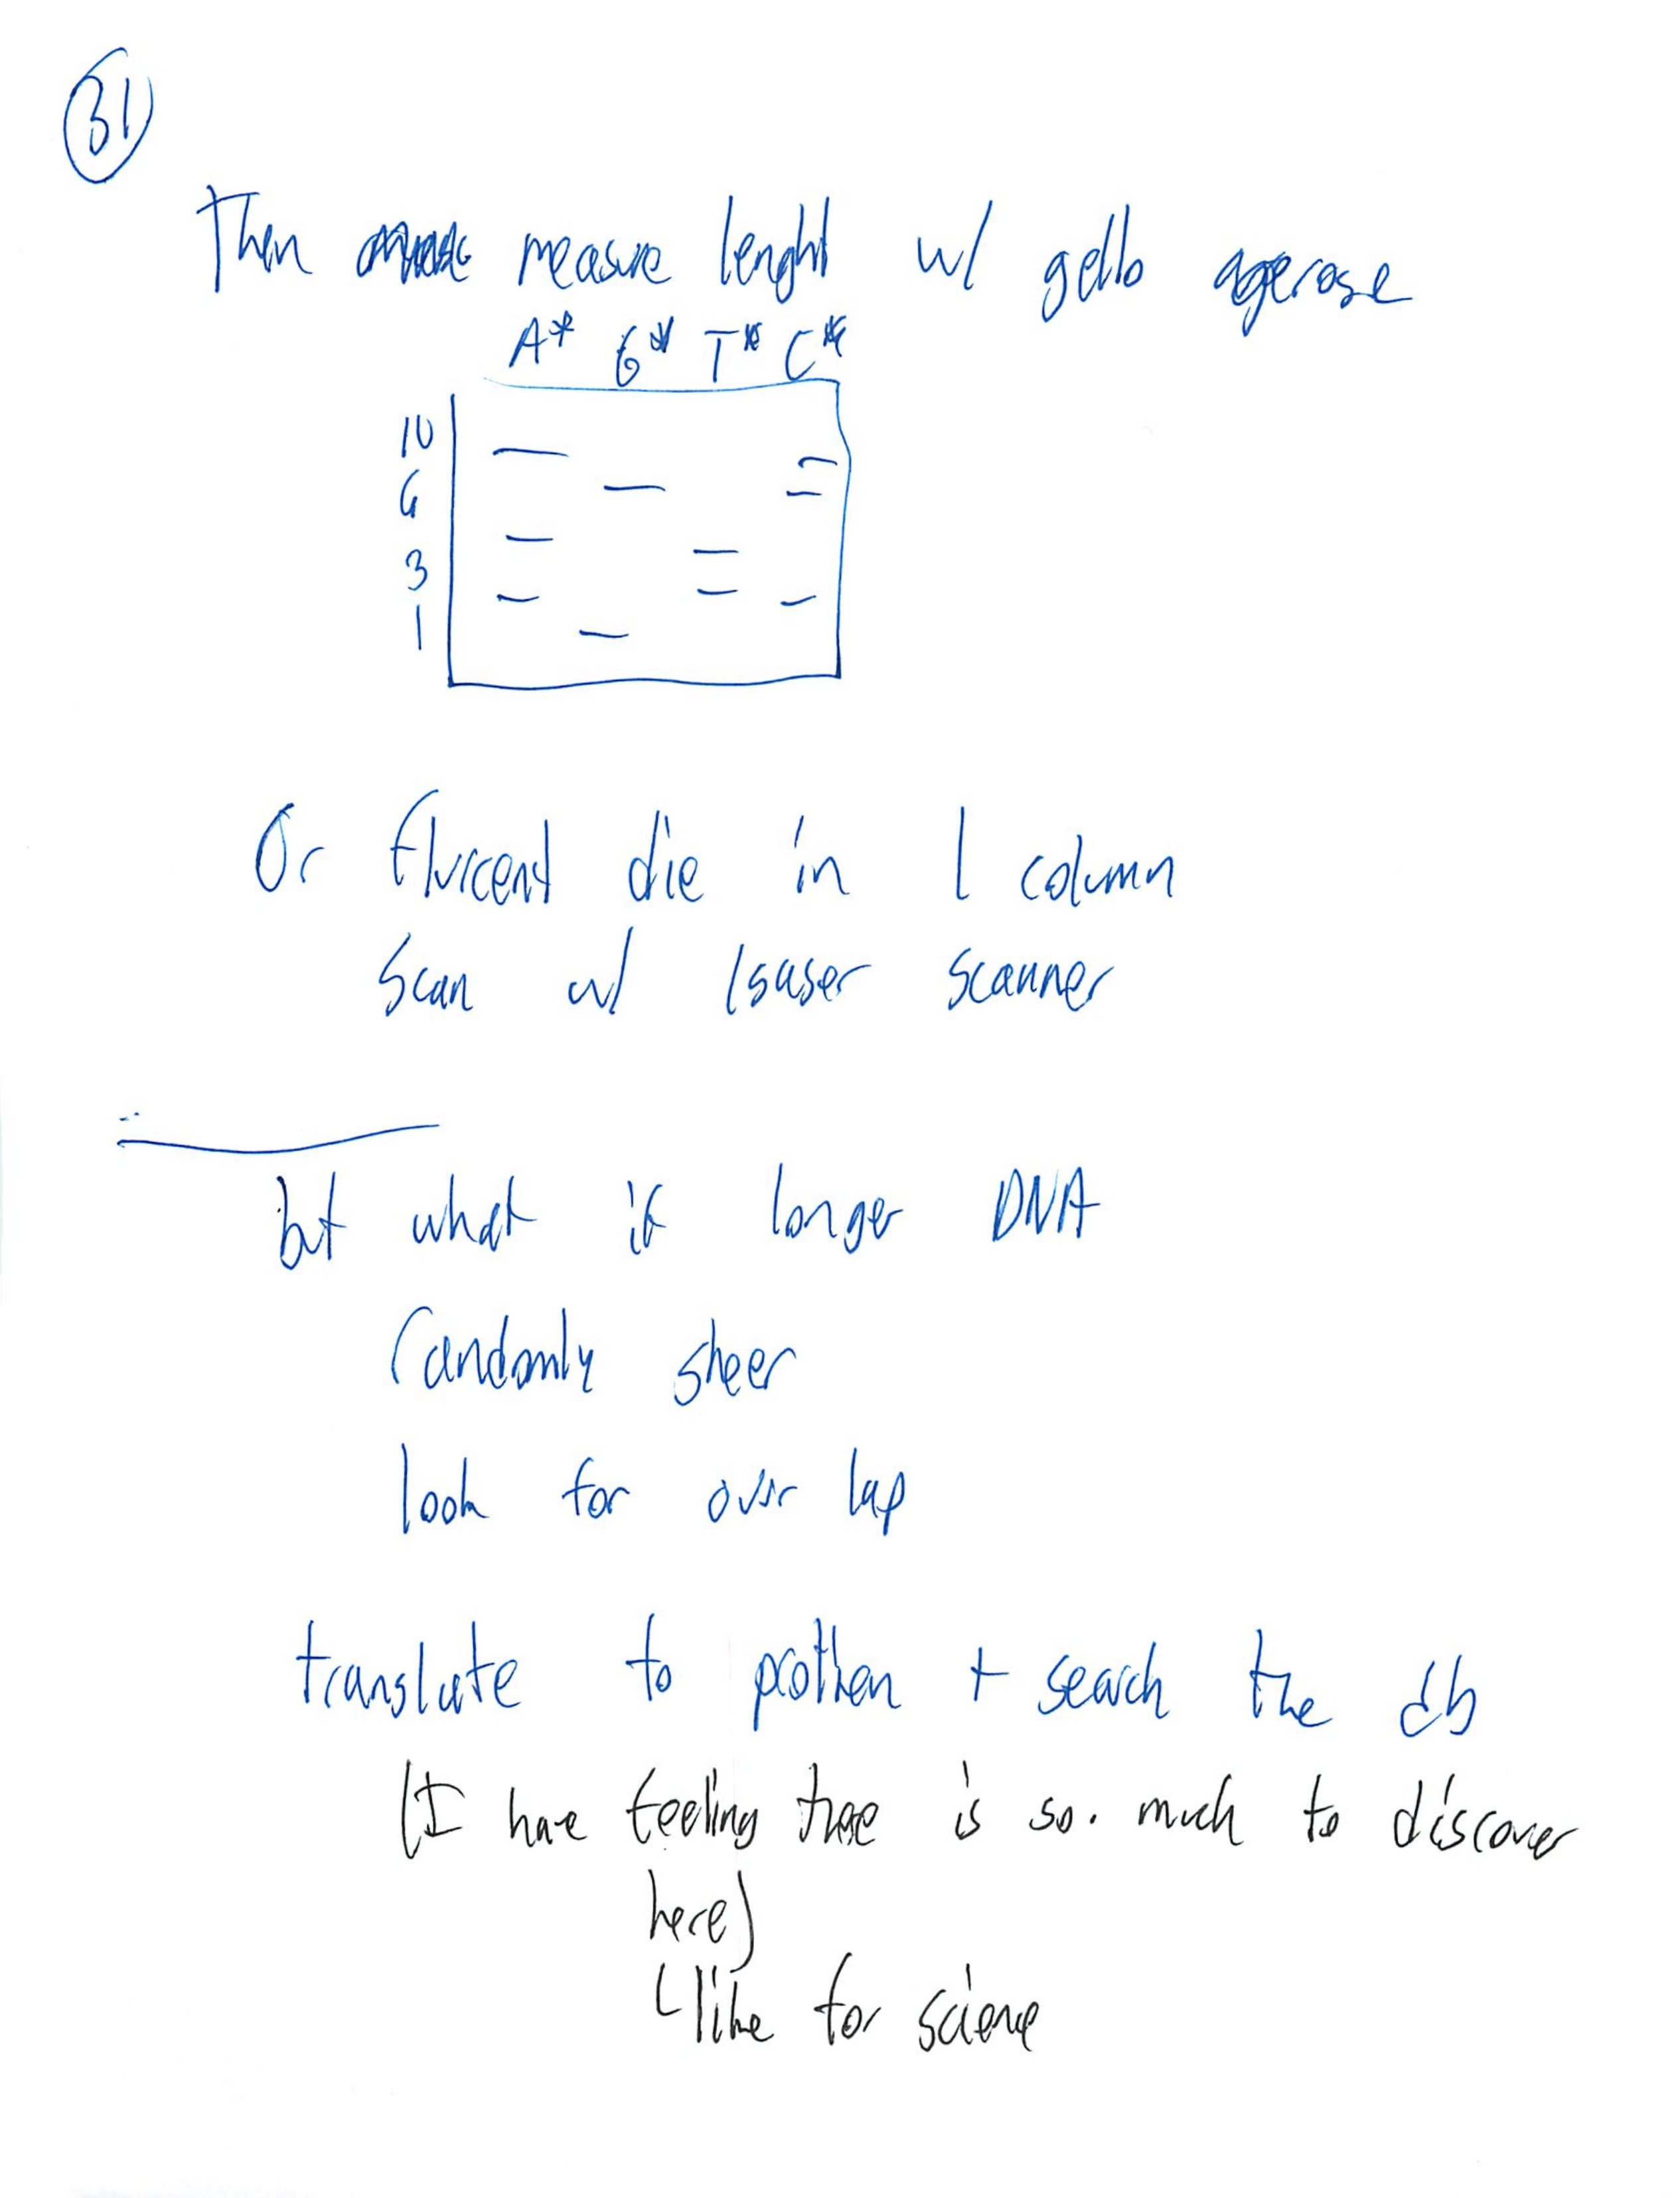 31
Then measure lenght w/ gello agerose
A* G* T* C*
10
6
3
1
Or flurcent die in 1 column
Scan w/ lsaser scanner
but what if longer DNA
randomly sheer
look for over lap
translate to prothen + search the db
(I have feeling there is so much to discover
here)
like for science